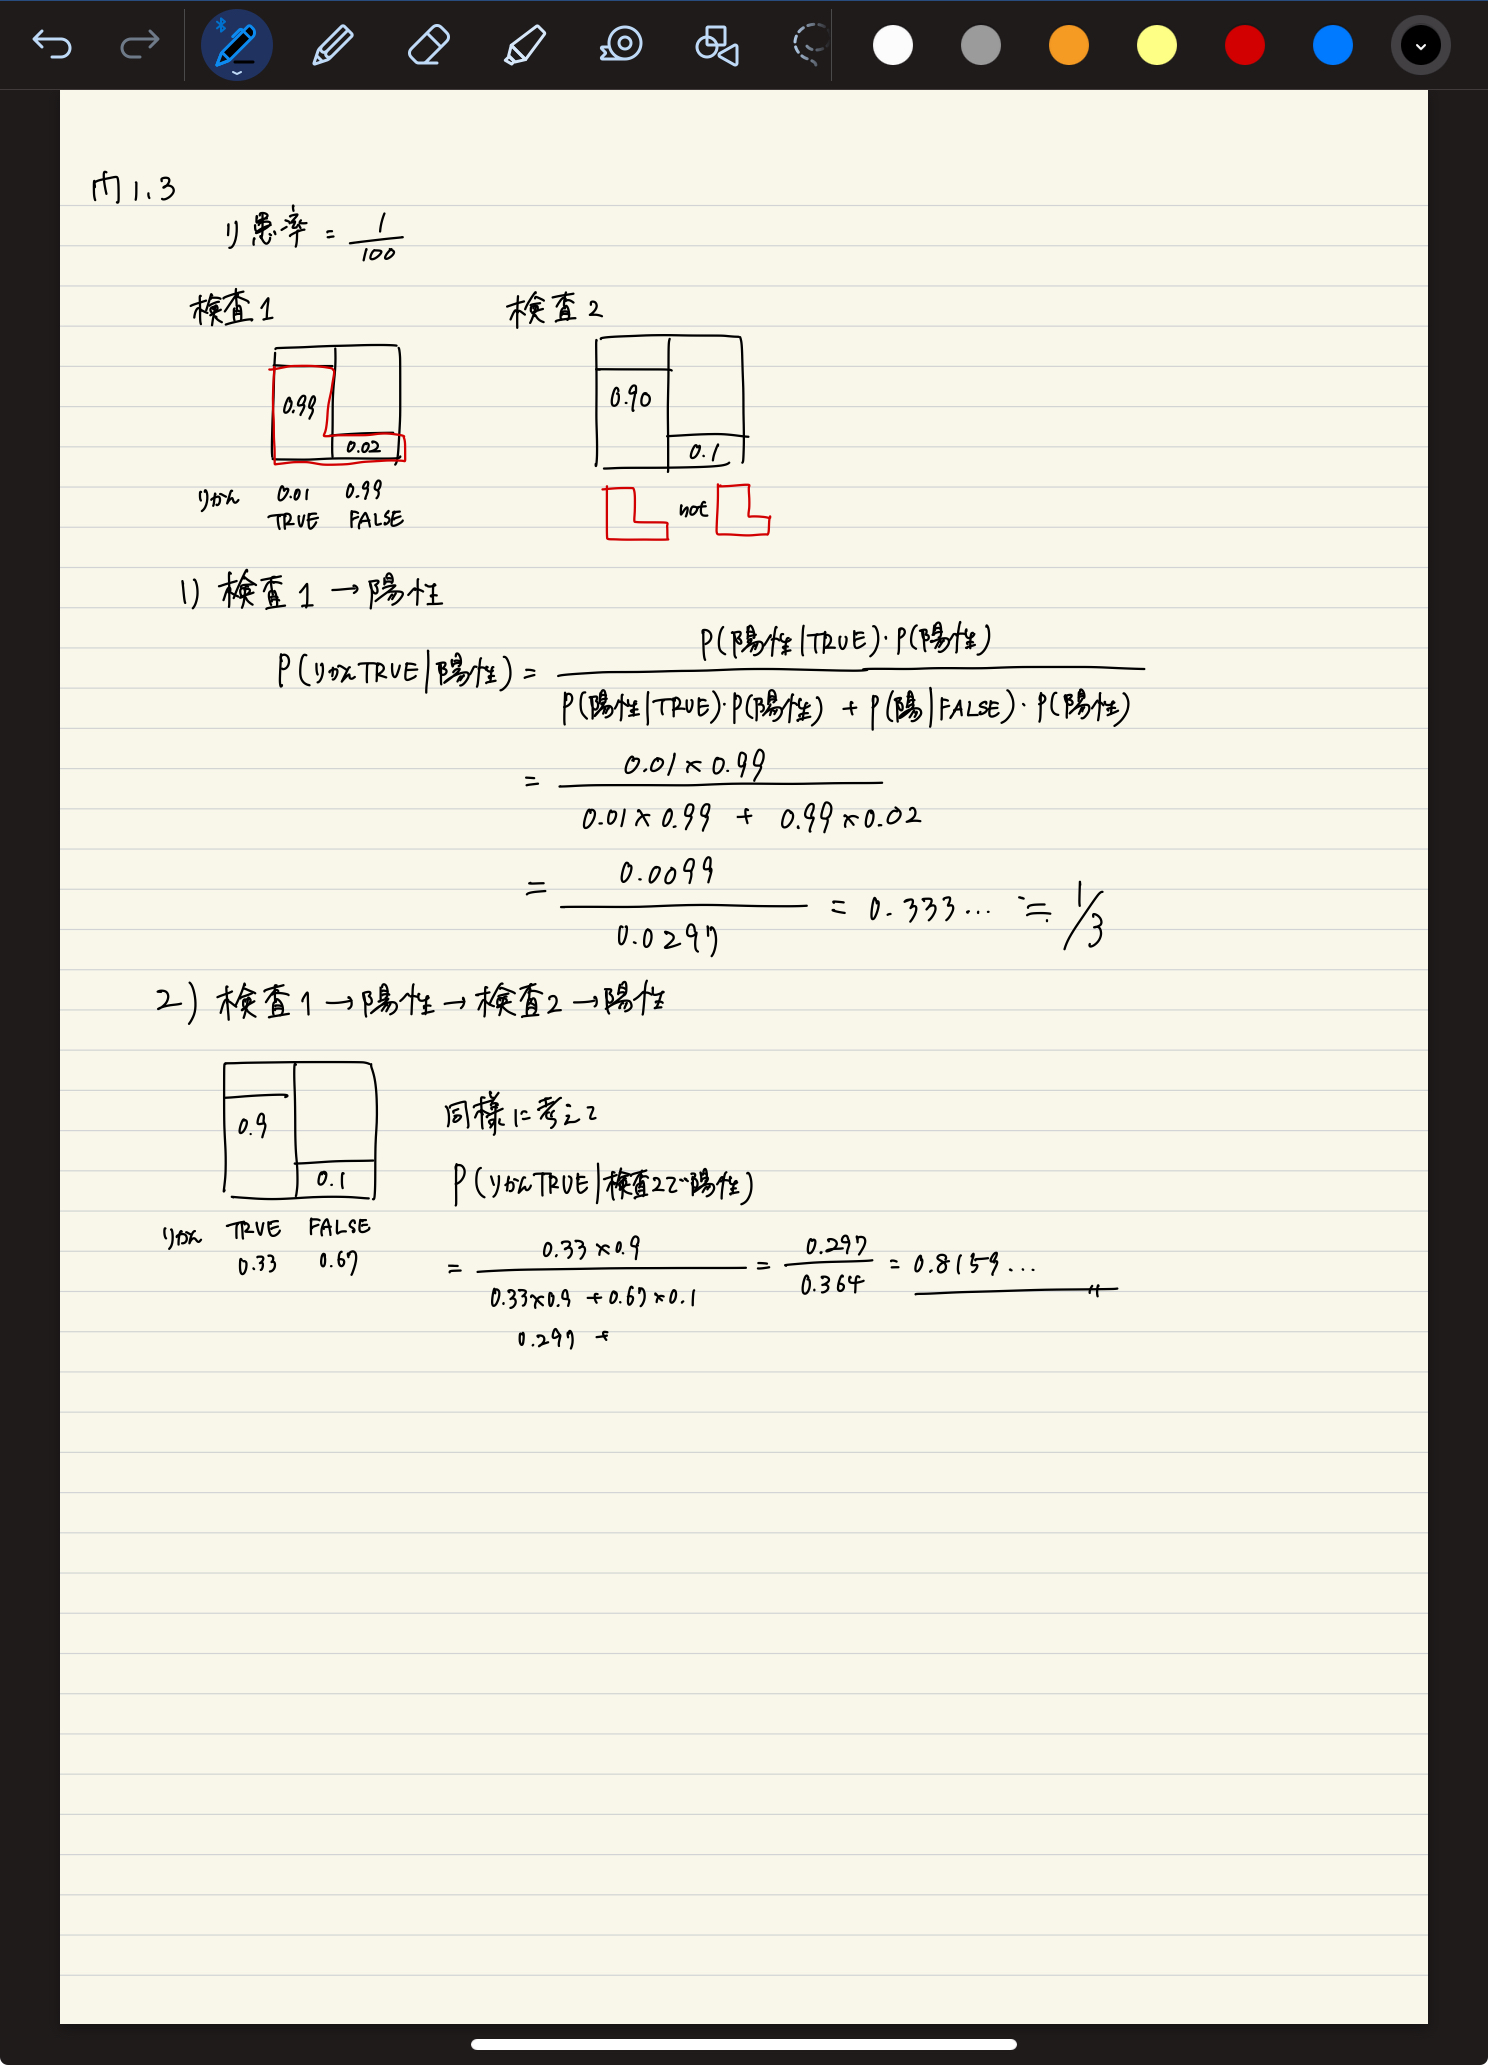 问1.3
り患率 = 1/100
検査1 検査2
0.99 0.02 0.90 0.1
りかん 0.01 0.99
TRUE FALSE
not
1) 検査1 → 陽性
P(りかんTRUE|陽性) = P(陽性|TRUE)・P(陽性) / P(陽性|TRUE)・P(陽性) + P(陽|FALSE)・P(陽性)
= 0.01 × 0.99 / 0.01 × 0.99 + 0.99 × 0.02
= 0.0099 / 0.0297 = 0.333... ≒ 1/3
2) 検査1 → 陽性 → 検査2 → 陽性
0.9 0.1
りかん TRUE FALSE
0.33 0.67
同様に考えて
P(りかんTRUE|検査2で陽性)
= 0.33 × 0.9 / 0.33×0.9 + 0.67×0.1 = 0.297 / 0.364 = 0.8159...
0.297 +